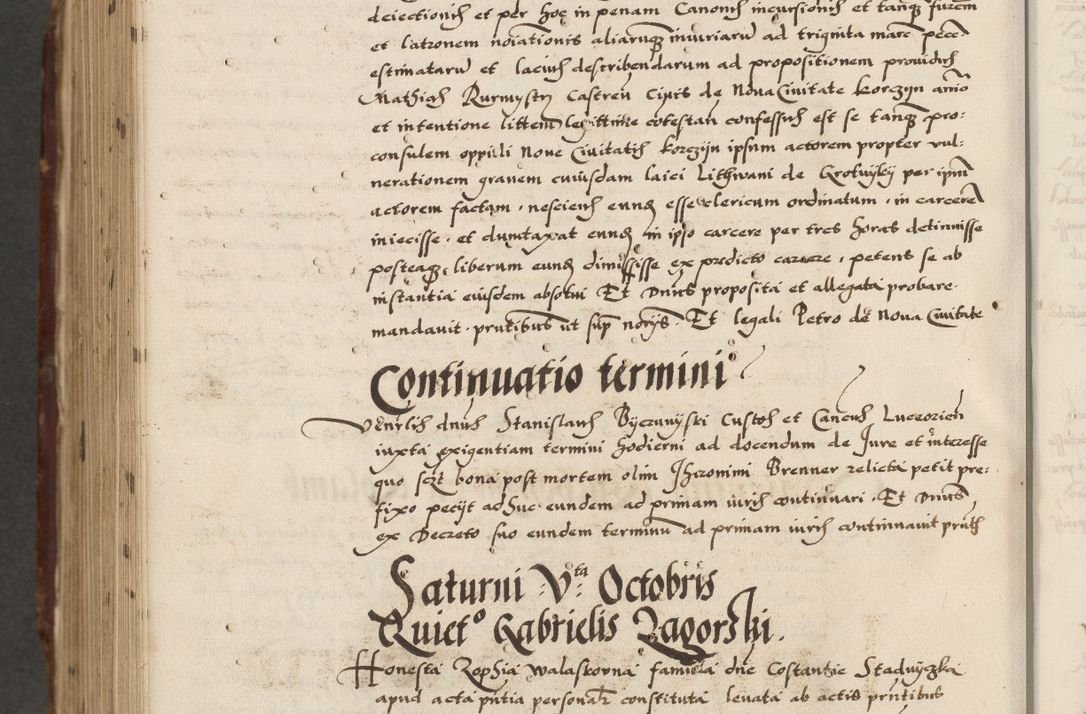 deiectionis et per hoc in penam Canonis incursionis et tanq3 furem
et latronem noiationis aliarumq3 iniuriaru ad triginta marc pecc
estimataru et lacius describendarum ad propositionem providi
Mathiae Burmystrz Castren Cipis de Nova Civitate Korczyn animo
et intentione littem legittime cotestan confessus est se tanq3 pro:
consulem oppidi Noue Civitatis Korczyn ipsum actorem propter vul:
nerationem grauem cuiusdam laici Lithwani de Grotwyky per ipm
actorem factam, nesciens eund esse clericum ordinatum, in carcere
iniecisse, et dumtaxat eund in ipso carcere per tres horas detinuisse
posteaq3 liberum eund dimisisse ex predicto carcere, petens se ab
instantia eiusdem absolui Et Dnus proposita et allegata probare
mandauit prntibus ut sup norijs. Et legali Petro de Noua Ciuitate
Continuatio termini
Venrlis dnus Stanislaus Byczynyski Custos et Cancus Luceorien
iuxta exigentiam termini hodierni ad docendum de Iure et interesse
quo fert bona post mortem olim Ihronimi Brenner relicta petit pre:
fixo pecijt adhuc eundem ad primam iuris continuari. Et Dnus
ex Decreto suo eundem terminu ad primam iuris continuauit prntis
Saturni Vta Octobris
Quieto Gabrielis Zagorski.
Honesta Zophia Walaskowna famula dne Costantie Stadnyczka
apud acta pntia personalr constituta leuata ab actis prntibus